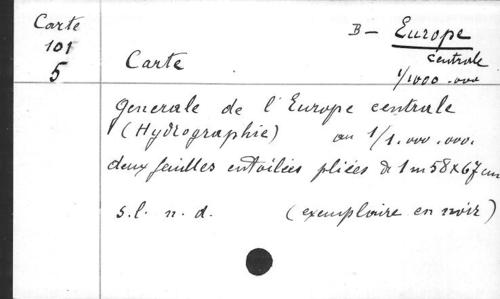 Carte
101
5
B - Europe
centrale
1/1000.000
Carte
generale de l'Europe centrale
(Hydrographie) au 1/1.000.000.
deux feuilles entoilées pliées de 1m58x67cm
s.l. n.d. (exemplaire en noir)